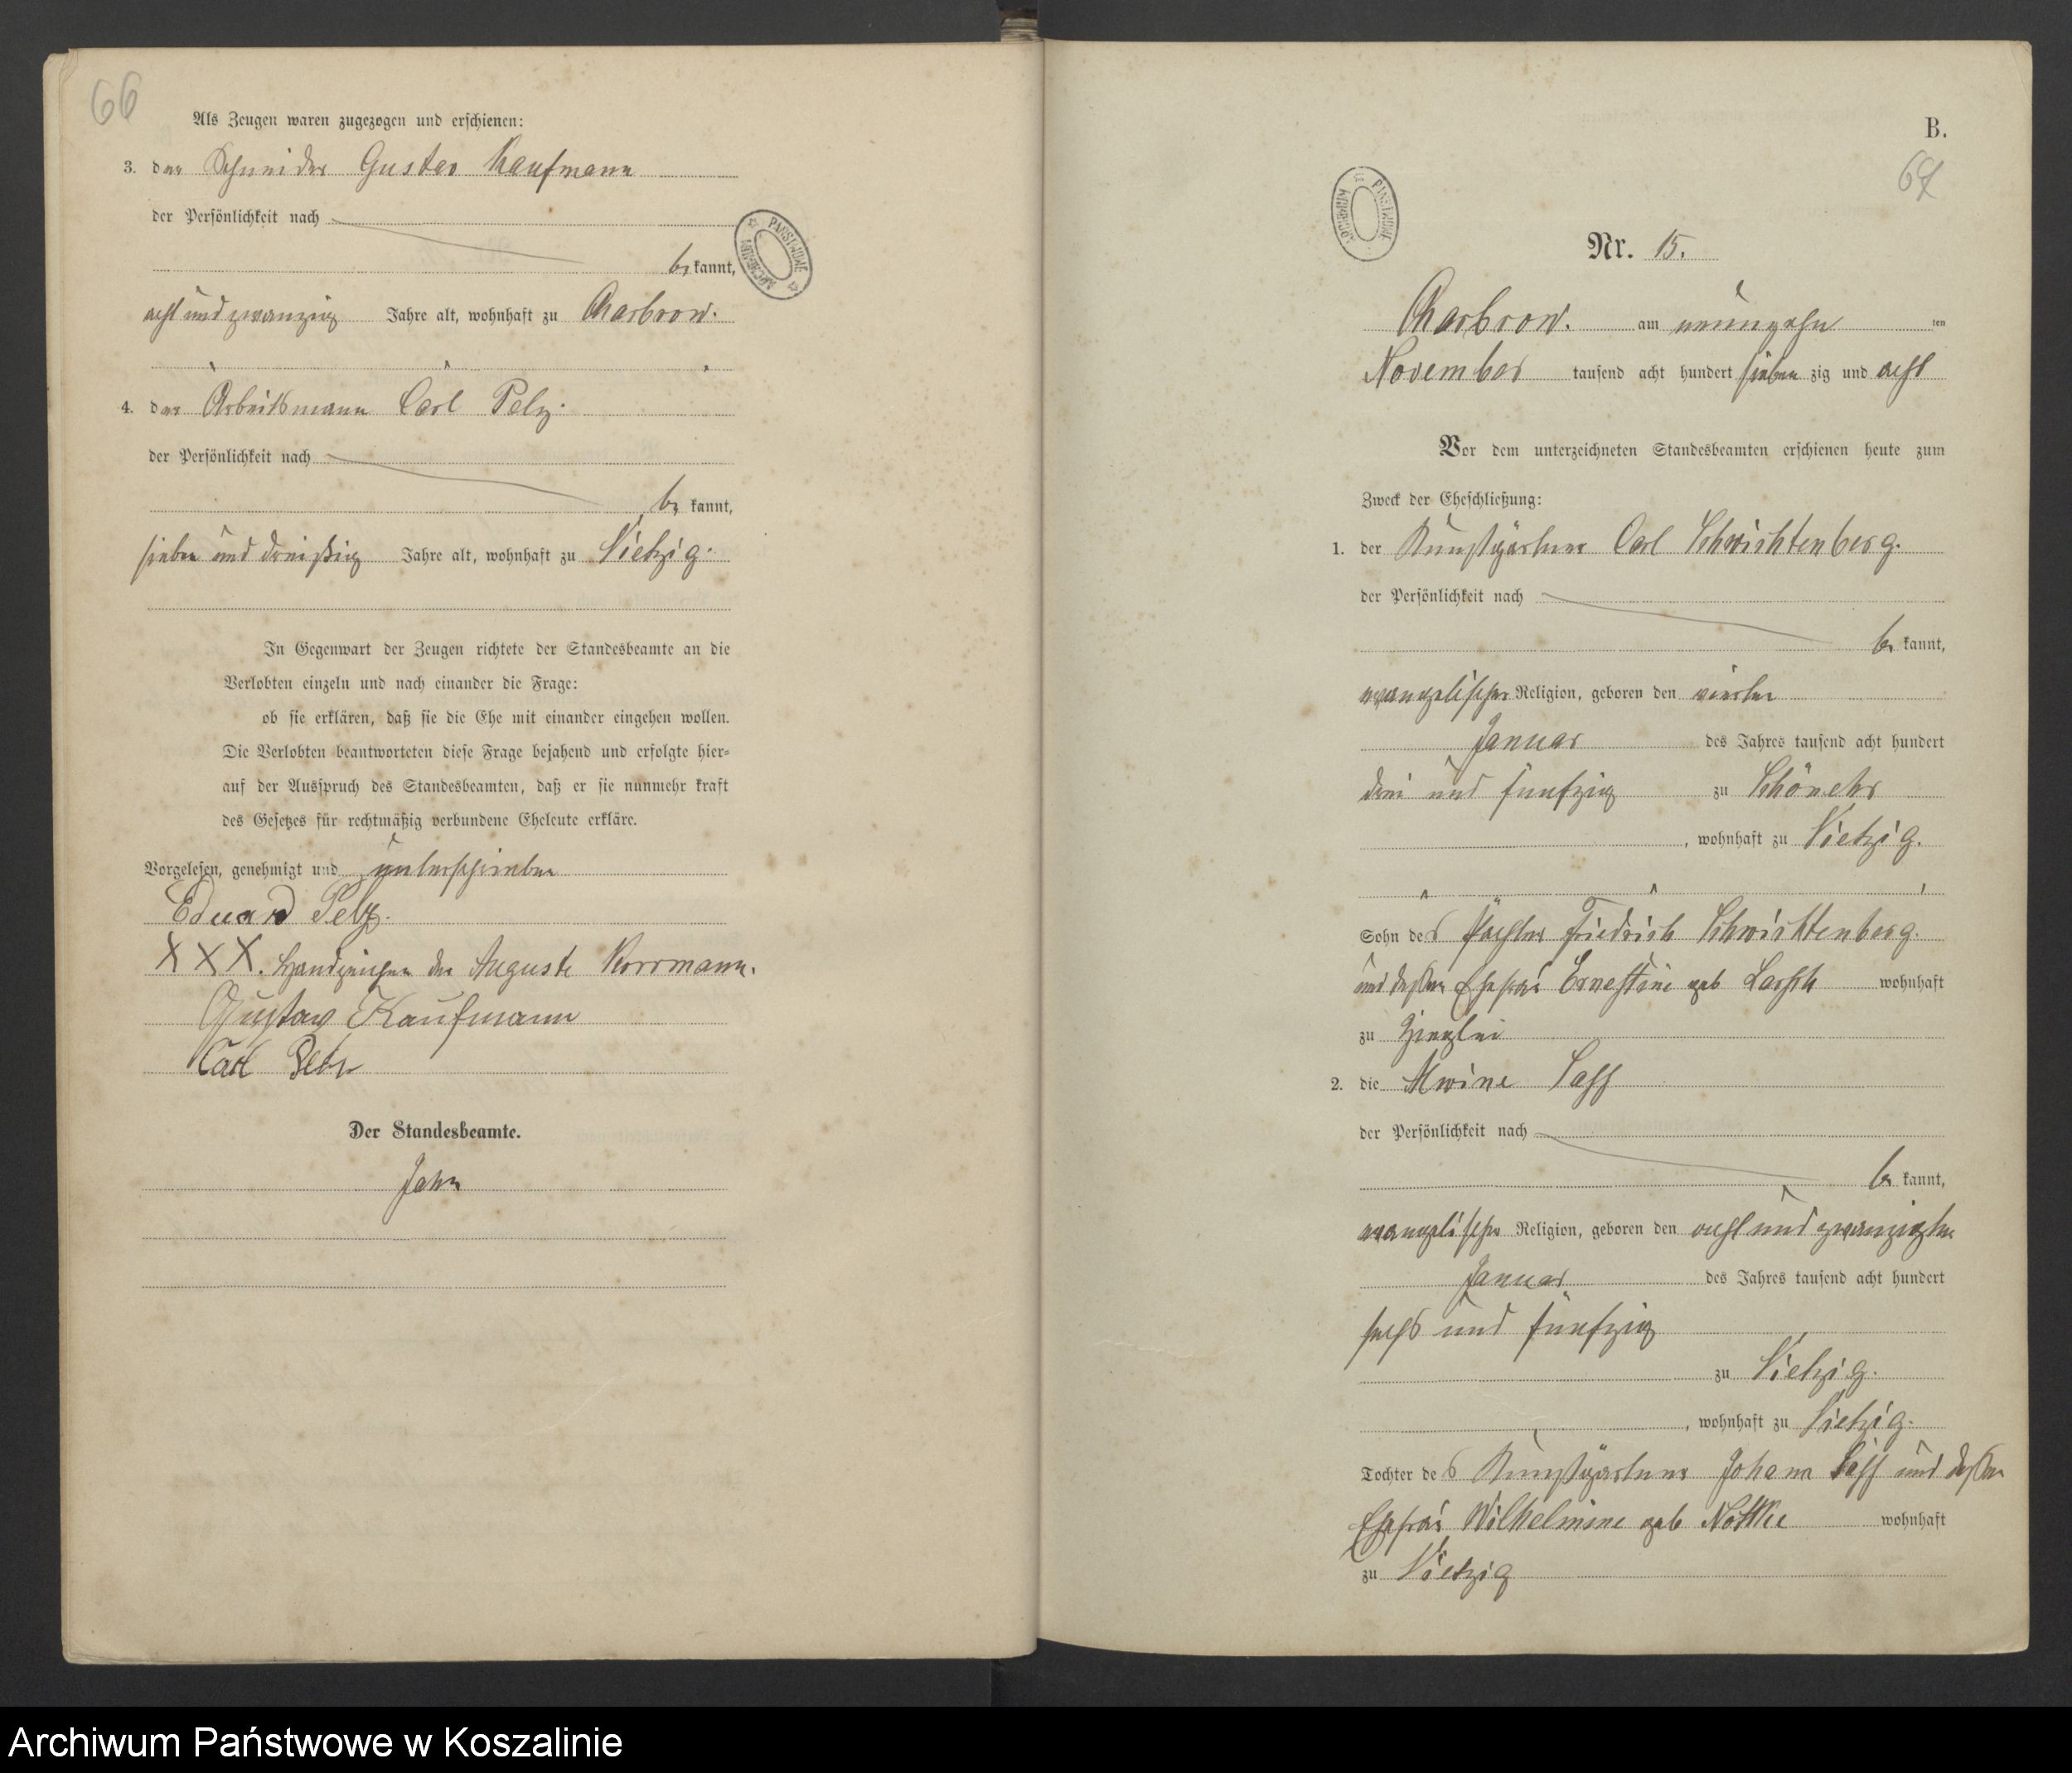 66
Als Zeugen waren zugezogen und erschienen:
3. der Schneider Gustav Kaufmann
der Persönlichkeit nach
be kannt,
acht und zwanzig Jahre alt, wohnhaft zu Charbrow.
4. der Arbeitsmann Carl Pelz.
der Persönlichkeit nach
be kannt,
sieben und dreißig Jahre alt, wohnhaft zu Vietzig.
In Gegenwart der Zeugen richtete der Standesbeamte an die
Verlobten einzeln und nach einander die Frage:
ob sie erklären, daß sie die Ehe mit einander eingehen wollen.
Die Verlobten beantworteten diese Frage bejahend und erfolgte hier-
auf der Ausspruch des Standesbeamten, daß er sie nunmehr kraft
des Gesetzes für rechtmäßig verbundene Eheleute erkläre.
Vorgelesen, genehmigt und unterschrieben
Eduard Pelz.
XXX. Handzeichen der Auguste Korrmann.
Gustav Kaufmann
Carl Pelz
Der Standesbeamte.
Jahn
ARCHIWUM PAŃSTWOWE
B.
67
ARCHIWUM PAŃSTWOWE
Nr. 15.
Charbrow. am neunzehn ten
November tausend acht hundert sieben zig und acht
Vor dem unterzeichneten Standesbeamten erschienen heute zum
Zweck der Eheschließung:
1. der Kunstgärtner Carl Schwichtenberg.
der Persönlichkeit nach
be kannt,
evangelischer Religion, geboren den vierten
Januar des Jahres tausend acht hundert
drei und fünfzig zu Schönehr
, wohnhaft zu Vietzig.
Sohn des Pächter Friedrich Schwichtenberg.
und dessen Ehefrau Ernestine geb wohnhaft
zu Ziegelei
2. die Alwine Saff
der Persönlichkeit nach
be kannt,
evangelischer Religion, geboren den acht und zwanzigsten
Januar des Jahres tausend acht hundert
sechs und fünfzig
zu Vietzig.
, wohnhaft zu Vietzig.
Tochter des Kunstgärtner Johann Saff und dessen
Ehefrau Wilhelmine geb Nottke wohnhaft
zu Vietzig
Archiwum Państwowe w Koszalinie